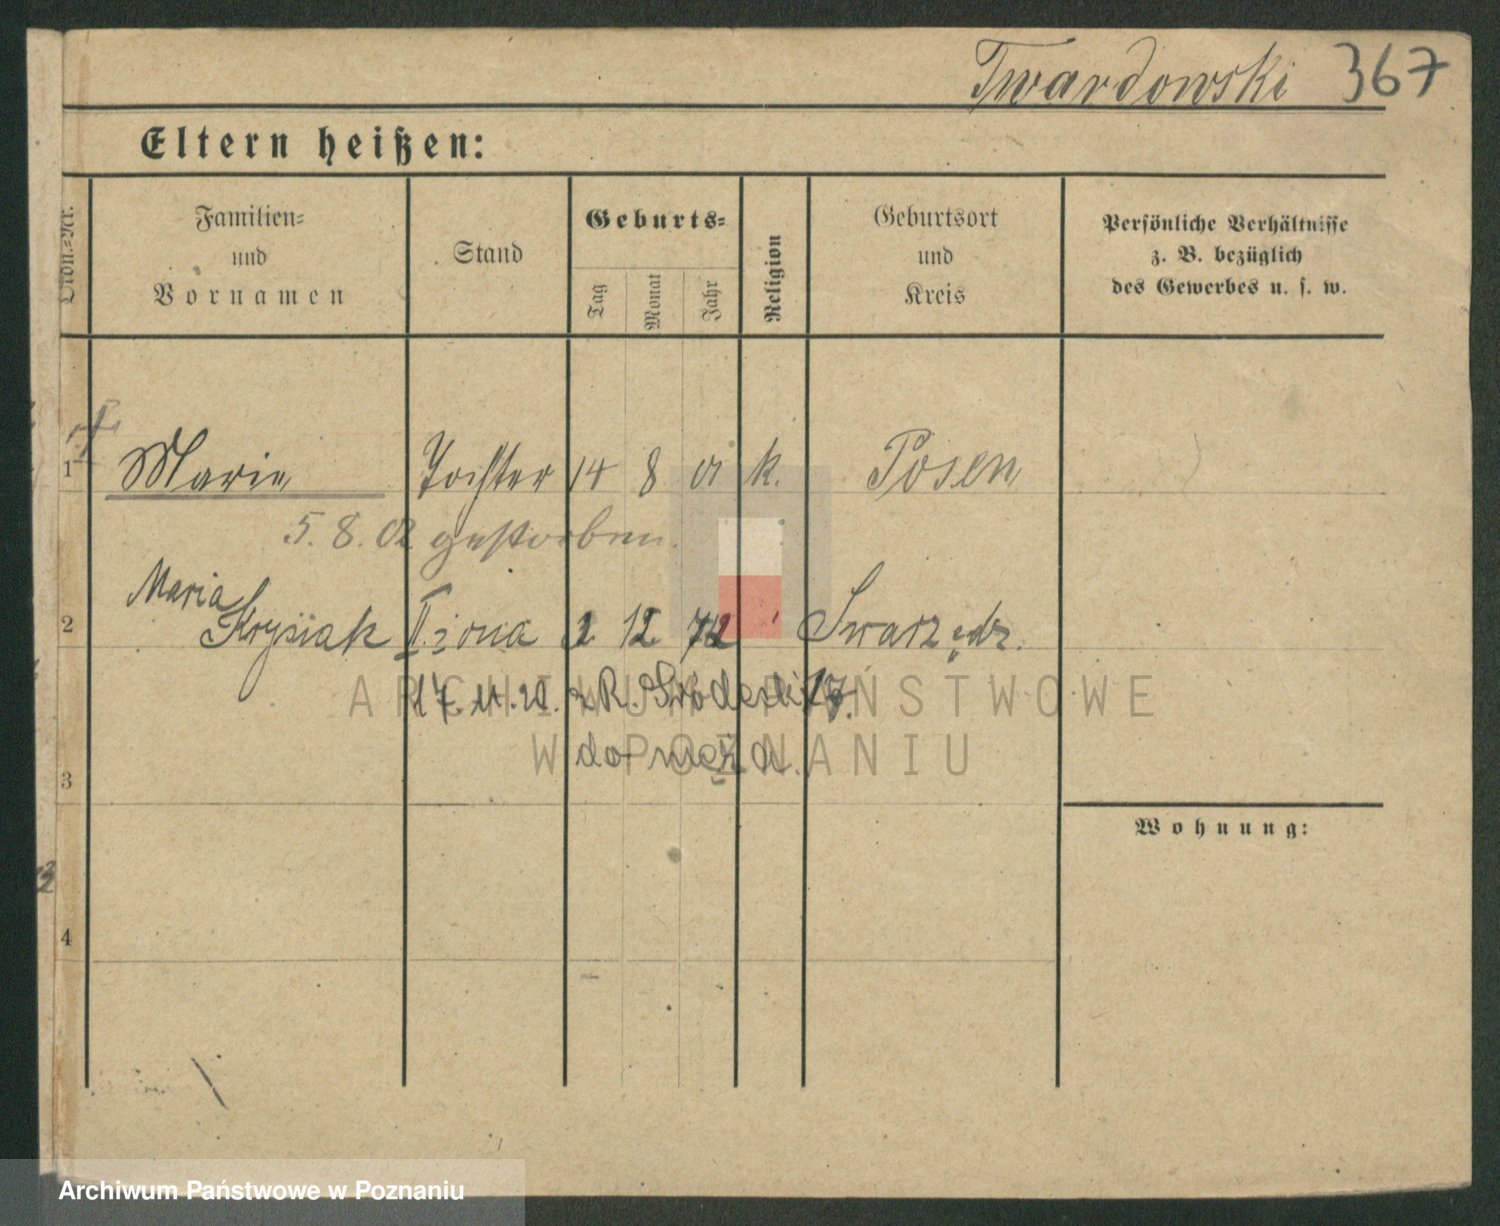 Twardowski 367
Eltern heißen:
Ordn.-Nr.
Familien-
und
Vornamen
Stand
Geburts-
Tag
Monat
Jahr
Religion
Geburtsort
und
Kreis
Persönliche Verhältnisse
z. B. bezüglich
des Gewerbes u. s. w.
1 Marie Tochter 14 8 01 k. Posen
5. 8. 02 gestorben.
Maria
2 Krysiak II żona 2 12 72 Swarzędz.
ARCHIWUM PAŃSTWOWE
17. 11. 21. z R. Grodecki 17.
W POZNANIU
do męża.
3
Wohnung:
4
Archiwum Państwowe w Poznaniu